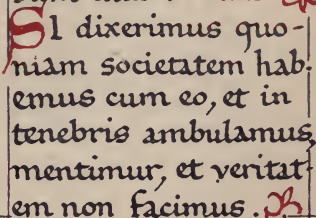 SI dixerimus quo-
niam societatem hab-
emus cum eo, et in
tenebris ambulamus,
mentimur, et veritat-
em non facimus.